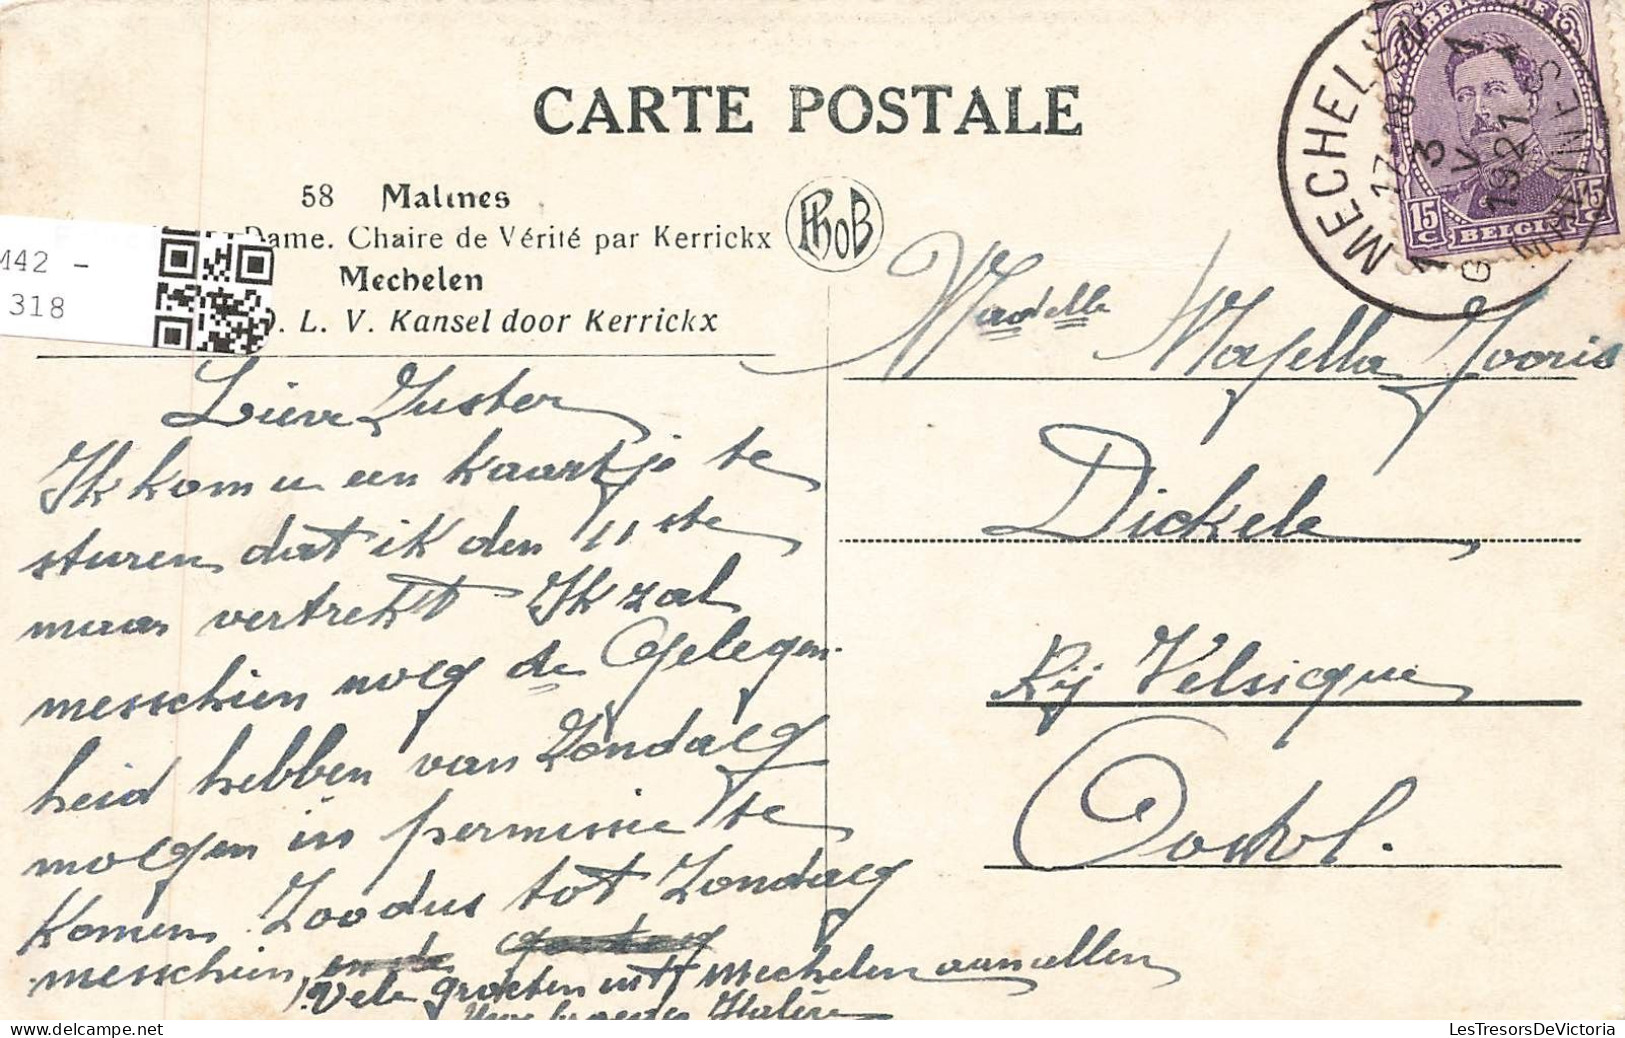 CARTE POSTALE
58 Malines
Dame. Chaire de Vérité par Kerrickx
Mechelen
L. V. Kansel door Kerrickx
M42 -
318
MECHELEN 1
17-18
3
V
1921
MALINES
15 C BELGIË 15 C
Lieve Zuster
Ik kom u een kaartje te
sturen dat ik den 11 ste
maar vertrekt Ik zal
messchien noeg de Gelegen
heid hebben van Zondaeg
moegen in permissie te
Komen Zoodus tot Zondaeg
messchien
Vele groeten uit Mechelen aan allen
Madelle Majella Jooris
Dickele
Bij Velsicque
Oostvl.
LesTresorsDeVictoria